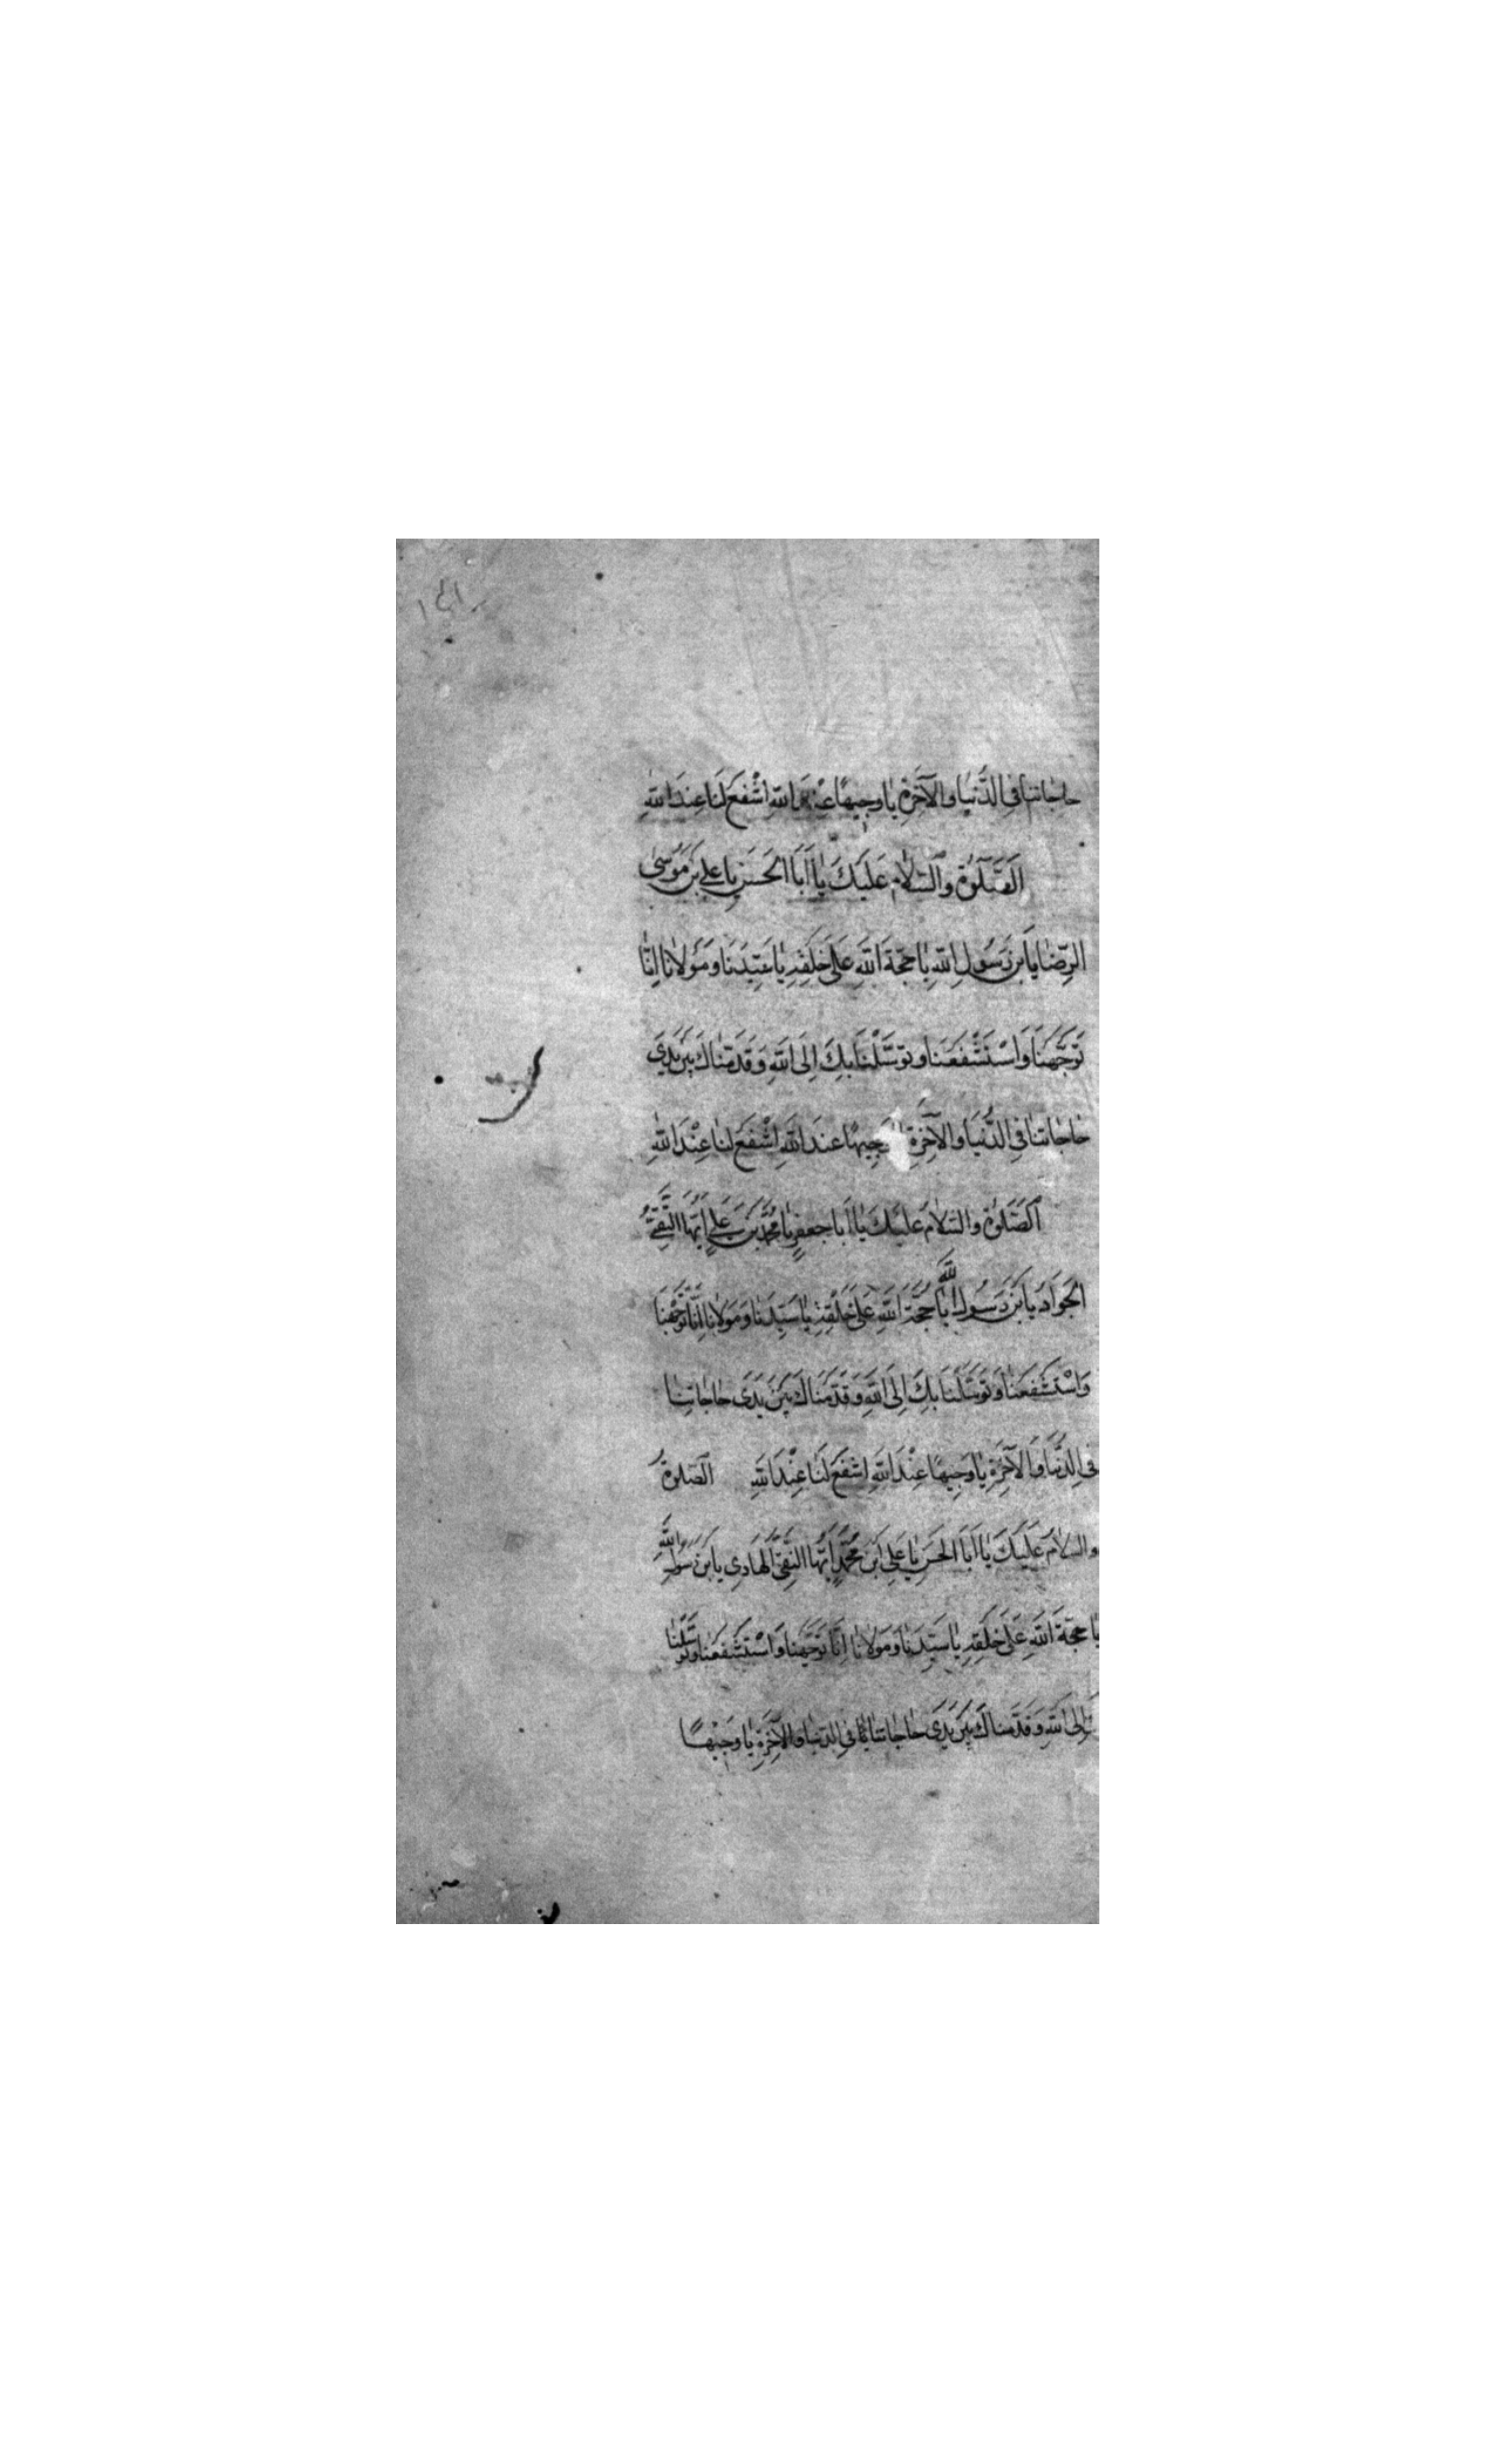 حاجاتنا فِي الدُّنيَا وَالآخِرَةِ يا وجيهًا عِنْدَ اللهِ اشْفَعْ لَنَا عِندَ اللهِ
اَلصَّلٰوةُ وَالسَّلامُ عَلَيْكَ يَا اَبَا الحَسَنِ يَا عَلِيَّ بْنَ مُوسَى
الرِّضَا يَا بْنَ رَسُولِ اللهِ يَا حُجَّةَ اللهِ عَلَى خَلْقِهِ يَا سَيِّدَنَا وَمَوْلَانَا اِنَّا
تَوَجَّهْنَا وَاسْتَشْفَعْنَا وَتَوَسَّلْنَا بِكَ اِلَى اللهِ وَقَدَّمْنَاكَ بَيْنَ يَدَيْ
حَاجَاتِنَا فِي الدُّنْيَا وَالآخِرَةِ وَجِيهًا عِندَ اللهِ اشْفَعْ لَنَا عِنْدَ اللهِ
اَلصَّلٰوةُ وَالسَّلامُ عَلَيْكَ يَا اَبَا جَعْفَرٍ يَا مُحَمَّدَ بْنَ عَلِيٍّ اَيُّهَا التَّقِيُّ
الجَوَادُ يَا بْنَ رَسُولِ اللهِ يَا حُجَّةَ اللهِ عَلَى خَلْقِهِ يَا سَيِّدَنَا وَمَوْلَانَا اِنَّا تَوَجَّهْنَا
وَاسْتَشْفَعْنَا وَتَوَسَّلْنَا بِكَ اِلَى اللهِ وَقَدَّمْنَاكَ بَيْنَ يَدَيْ حَاجَاتِنَا
فِي الدُّنْيَا وَالآخِرَةِ يَا وَجِيهًا عِنْدَ اللهِ اشْفَعْ لَنَا عِنْدَ اللهِ الصَّلٰوةُ
وَالسَّلامُ عَلَيْكَ يَا اَبَا الحَسَنِ يَا عَلِيَّ ابْنَ مُحَمَّدٍ اَيُّهَا النَّقِيُّ الهَادِي يَا بْنَ رَسُولِ اللهِ
يَا حُجَّةَ اللهِ عَلَى خَلْقِهِ يَا سَيِّدَنَا وَمَوْلَانَا اِنَّا تَوَجَّهْنَا وَاسْتَشْفَعْنَا وَتَوَسَّلْنَا
اِلَى اللهِ وَقَدَّمْنَاكَ بَيْنَ يَدَيْ حَاجَاتِنَا فِي الدُّنْيَا وَالآخِرَةِ يَا وَجِيْهًا